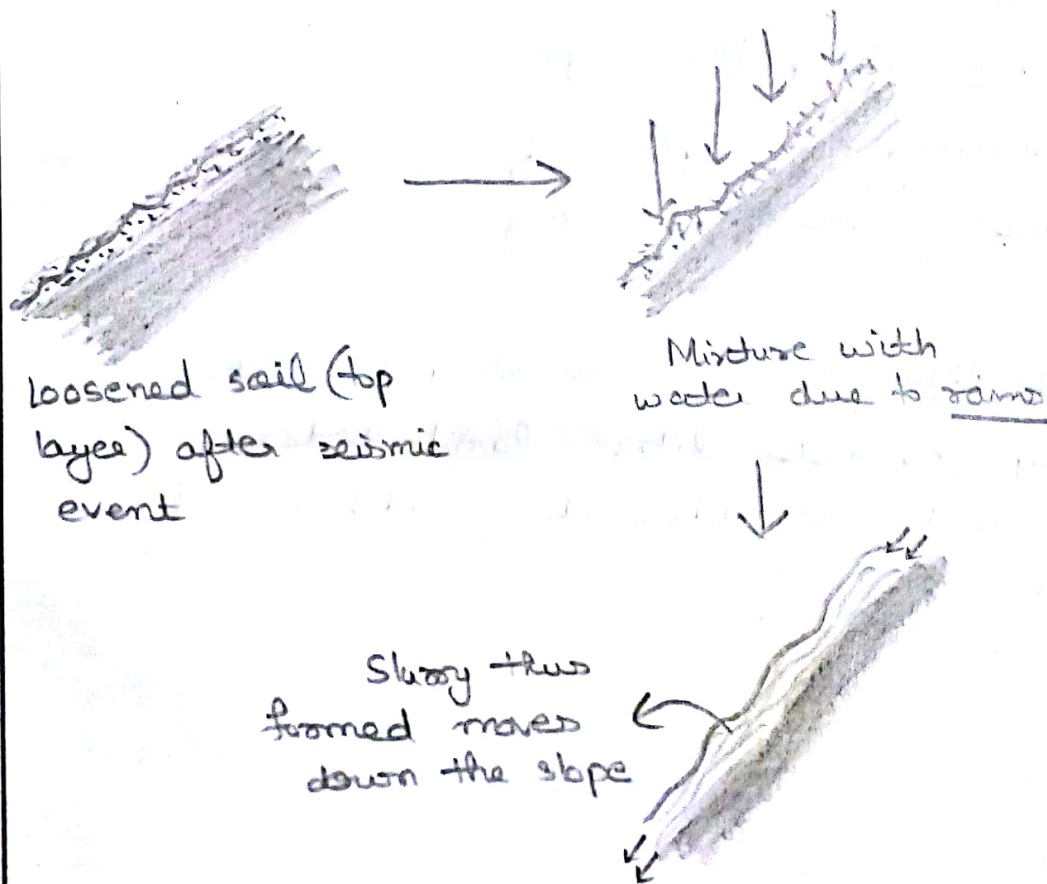 loosened soil (top
layer) after seismic
event
Mixture with
water due to rains
Slurry thus
formed moves
down the slope